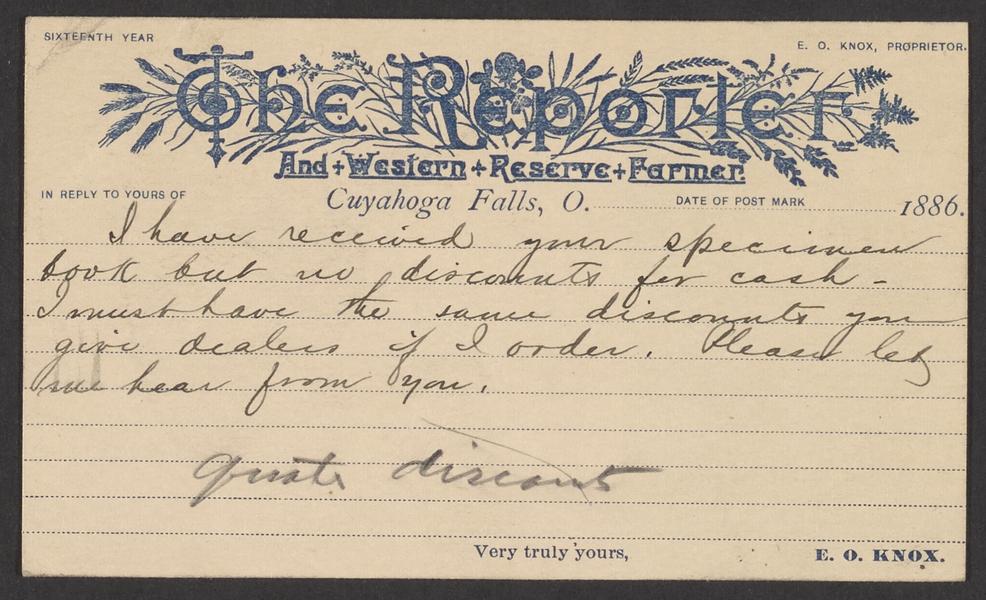 SIXTEENTH YEAR
E. O. KNOX, PROPRIETOR.
The Reporter
And + Western + Reserve + Farmer
IN REPLY TO YOURS OF
Cuyahoga Falls, O.
DATE OF POST MARK
1886.
I have received your specimen
book but no discounts for cash -
I must have the same discounts you
give dealers if I order. Please let
me hear from you.
quote discount
Very truly yours,
E. O. KNOX.